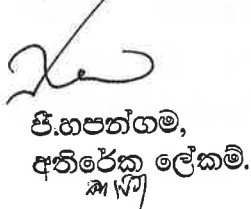 ජී.හපන්ගම,
අතිරේක ලේකම්.